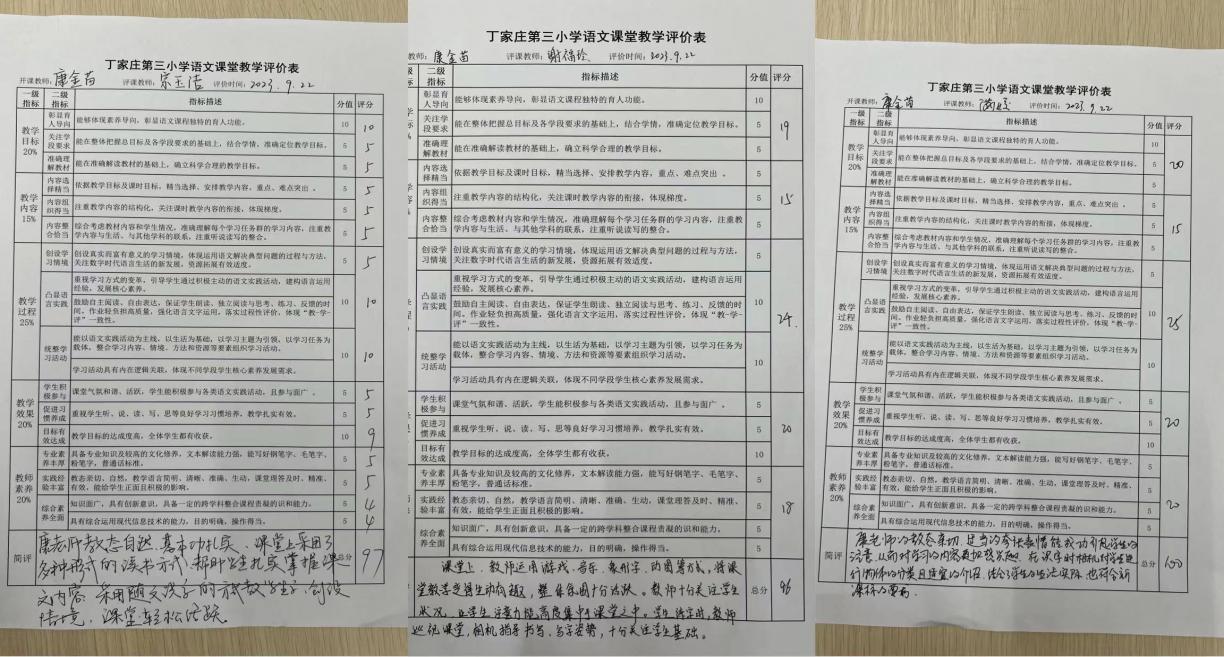 丁家庄第三小学语文课堂教学评价表
开课教师：康金苗 评课教师：宋玉洁 评价时间：2023.9.22
一级指标 二级指标 指标描述 分值 评分
教学目标20%
彰显育人导向 能够体现素养导向，彰显语文课程独特的育人功能。 10 10
关注学段要求 能在整体把握总目标及各学段要求的基础上，结合学情，准确定位教学目标。 5 5
准确理解教材 能在准确解读教材的基础上，确立科学合理的教学目标。 5 5
教学内容15%
内容选择精当 依据教学目标及课时目标，精当选择、安排教学内容，重点、难点突出 。 5 5
内容组织得当 注重教学内容的结构化，关注课时教学内容的衔接，体现梯度。 5 5
内容整合恰当 综合考虑教材内容和学生情况，准确理解每个学习任务群的学习内容，注重教学内容与生活、与其他学科的联系，注重听说读写的整合。 5 5
教学过程25%
创设学习情境 创设真实而富有意义的学习情境，体现运用语文解决典型问题的过程与方法，关注数字时代语言生活的新发展，资源拓展有效适度。 5 5
凸显语言实践 重视学习方式的变革，引导学生通过积极主动的语文实践活动，建构语言运用经验，发展核心素养。
鼓励自主阅读、自由表达，保证学生朗读、独立阅读与思考、练习、反馈的时间。作业轻负担高质量，强化语言文字运用，落实过程性评价，体现“教-学-评”一致性。 10 10
统整学习活动 能以语文实践活动为主线，以生活为基础，以学习主题为引领，以学习任务为载体，整合学习内容、情境、方法和资源等要素组织学习活动。
学习活动具有内在逻辑关联，体现不同学段学生核心素养发展需求。 10 10
教学效果20%
学生积极参与 课堂气氛和谐、活跃，学生能积极参与各类语文实践活动，且参与面广 。 5 5
促进习惯养成 重视学生听、说、读、写、思等良好学习习惯培养，教学扎实有效。 5 5
目标有效达成 教学目标的达成度高，全体学生都有收获。 10 9
教师素养20%
专业素养丰厚 具备专业知识及较高的文化修养，文本解读能力强，能写好钢笔字、毛笔字、粉笔字，普通话标准。 5 5
实践经验丰富 教态亲切、自然，教学语言简明、清晰、准确、生动，课堂理答及时、精准、有效，能给学生正面且积极的影响。 5 5
综合素养全面 知识面广，具有创新意识，具备一定的跨学科整合课程资源的意识和能力。 5 4
具有综合运用现代信息技术的能力，目的明确，操作得当。 5 4
简评 康老师教态自然，基本功扎实。课堂上采用了 总分 97
多种形式的读书方式，帮助学生扎实掌握课
文内容。采用随文识字的 教学生字，创设
情境，课堂轻松活跃。
丁家庄第三小学语文课堂教学评价表
教师：康金苗 评课教师：谢 评价时间：2023.9.22
二级指标 指标描述 分值 评分
彰显育人导向 能够体现素养导向，彰显语文课程独特的育人功能。 10
关注学段要求 能在整体把握总目标及各学段要求的基础上，结合学情，准确定位教学目标。 5 19
准确理解教材 能在准确解读教材的基础上，确立科学合理的教学目标。 5
内容选择精当 依据教学目标及课时目标，精当选择、安排教学内容，重点、难点突出 。 5
内容组织得当 注重教学内容的结构化，关注课时教学内容的衔接，体现梯度。 5 15
内容整合恰当 综合考虑教材内容和学生情况，准确理解每个学习任务群的学习内容，注重教学内容与生活、与其他学科的联系，注重听说读写的整合。 5
创设学习情境 创设真实而富有意义的学习情境，体现运用语文解决典型问题的过程与方法，关注数字时代语言生活的新发展，资源拓展有效适度。 5
凸显语言实践 重视学习方式的变革，引导学生通过积极主动的语文实践活动，建构语言运用经验，发展核心素养。
鼓励自主阅读、自由表达，保证学生朗读、独立阅读与思考、练习、反馈的时间。作业轻负担高质量，强化语言文字运用，落实过程性评价，体现“教-学-评”一致性。 10 24
统整学习活动 能以语文实践活动为主线，以生活为基础，以学习主题为引领，以学习任务为载体，整合学习内容、情境、方法和资源等要素组织学习活动。
学习活动具有内在逻辑关联，体现不同学段学生核心素养发展需求。 10
学生积极参与 课堂气氛和谐、活跃，学生能积极参与各类语文实践活动，且参与面广 。 5
促进习惯养成 重视学生听、说、读、写、思等良好学习习惯培养，教学扎实有效。 5 20
目标有效达成 教学目标的达成度高，全体学生都有收获。 10
专业素养丰厚 具备专业知识及较高的文化修养，文本解读能力强，能写好钢笔字、毛笔字、粉笔字，普通话标准。 5
实践经验丰富 教态亲切、自然，教学语言简明、清晰、准确、生动，课堂理答及时、精准、有效，能给学生正面且积极的影响。 5 18
综合素养全面 知识面广，具有创新意识，具备一定的跨学科整合课程资源的意识和能力。 5
具有综合运用现代信息技术的能力，目的明确，操作得当。 5
课堂上，教师运用游戏、音乐、象形字、动图等方式，将课 总分 96
堂教学变得生动有趣，整体氛围十分活跃。教师十分关注学生
状况，让学生注意力能高度集中于课堂之中。学生练字时，教师
巡视课堂，相机指导书写、写字姿势，十分关注学生基础。
丁家庄第三小学语文课堂教学评价表
开课教师：康金苗 评课教师： 评价时间：2023.9.22
一级指标 二级指标 指标描述 分值 评分
教学目标20%
彰显育人导向 能够体现素养导向，彰显语文课程独特的育人功能。 10
关注学段要求 能在整体把握总目标及各学段要求的基础上，结合学情，准确定位教学目标。 5 20
准确理解教材 能在准确解读教材的基础上，确立科学合理的教学目标。 5
教学内容15%
内容选择精当 依据教学目标及课时目标，精当选择、安排教学内容，重点、难点突出 。 5
内容组织得当 注重教学内容的结构化，关注课时教学内容的衔接，体现梯度。 5 15
内容整合恰当 综合考虑教材内容和学生情况，准确理解每个学习任务群的学习内容，注重教学内容与生活、与其他学科的联系，注重听说读写的整合。 5
教学过程25%
创设学习情境 创设真实而富有意义的学习情境，体现运用语文解决典型问题的过程与方法，关注数字时代语言生活的新发展，资源拓展有效适度。 5
凸显语言实践 重视学习方式的变革，引导学生通过积极主动的语文实践活动，建构语言运用经验，发展核心素养。
鼓励自主阅读、自由表达，保证学生朗读、独立阅读与思考、练习、反馈的时间。作业轻负担高质量，强化语言文字运用，落实过程性评价，体现“教-学-评”一致性。 10 25
统整学习活动 能以语文实践活动为主线，以生活为基础，以学习主题为引领，以学习任务为载体，整合学习内容、情境、方法和资源等要素组织学习活动。
学习活动具有内在逻辑关联，体现不同学段学生核心素养发展需求。 10
教学效果20%
学生积极参与 课堂气氛和谐、活跃，学生能积极参与各类语文实践活动，且参与面广 。 5
促进习惯养成 重视学生听、说、读、写、思等良好学习习惯培养，教学扎实有效。 5 20
目标有效达成 教学目标的达成度高，全体学生都有收获。 10
教师素养20%
专业素养丰厚 具备专业知识及较高的文化修养，文本解读能力强，能写好钢笔字、毛笔字、粉笔字，普通话标准。 5
实践经验丰富 教态亲切、自然，教学语言简明、清晰、准确、生动，课堂理答及时、精准、有效，能给学生正面且积极的影响。 5 20
综合素养全面 知识面广，具有创新意识，具备一定的跨学科整合课程资源的意识和能力。 5
具有综合运用现代信息技术的能力，目的明确，操作得当。 5
简评 康老师的教态亲切，适当的夸张表情能成功引起学生的 总分 100
注意，从而对学习的内容更加感兴趣。在识字时相机对学生进
行 的分类且适宜的介绍，结合学生的生活实际，也符合新
课标的要求。